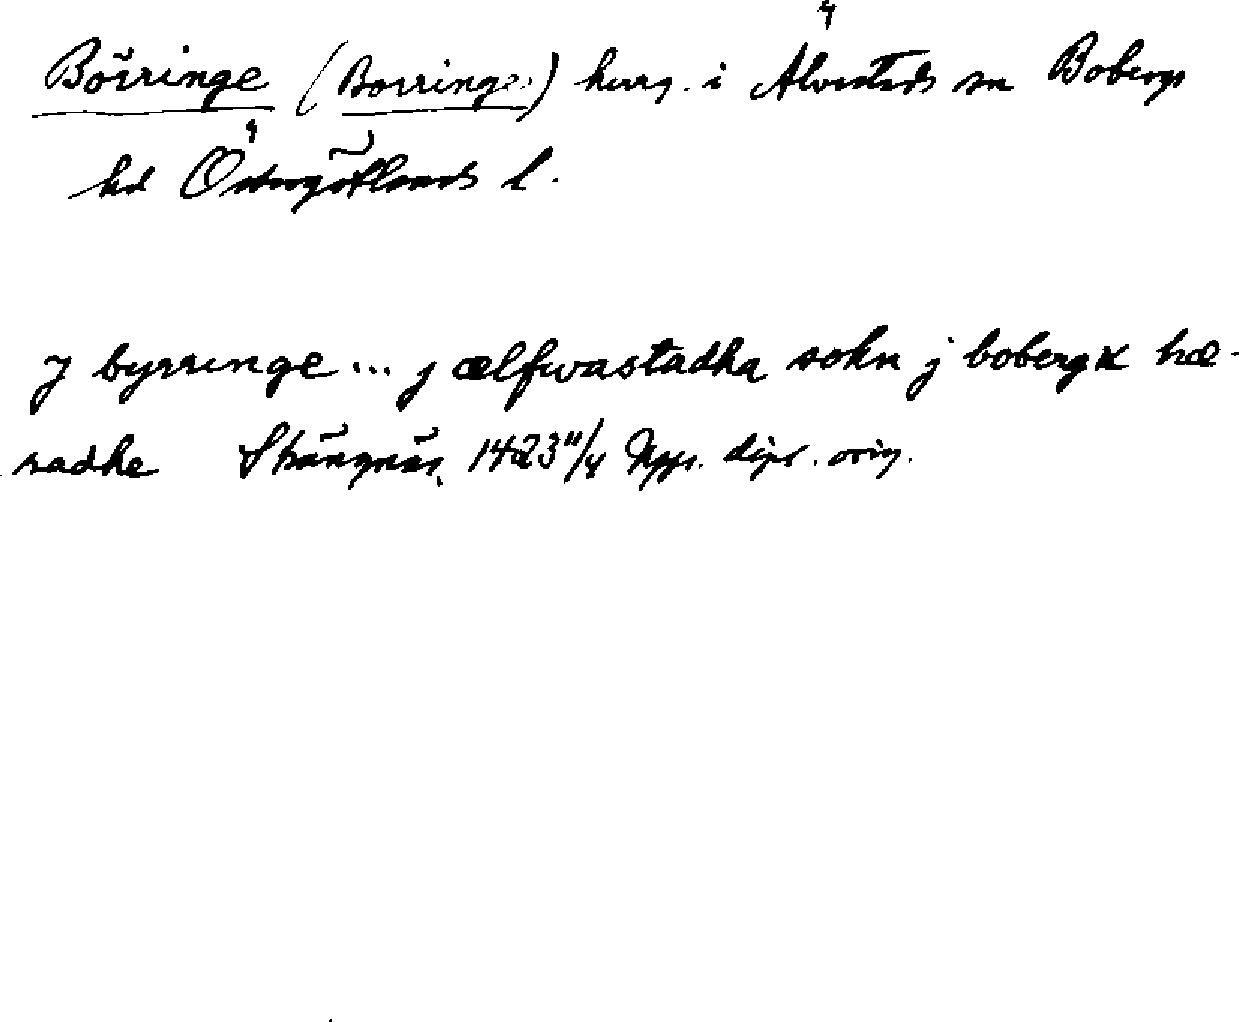 Börringe (Borringe) herrg. i Älvestads sn Bobergs
hd Östergötlands l.
J byrringe ... j ælfwastadha sokn j bobergx hæ-
radhe Strängnäs, 1423 11/4 Upps. dipl. orig.